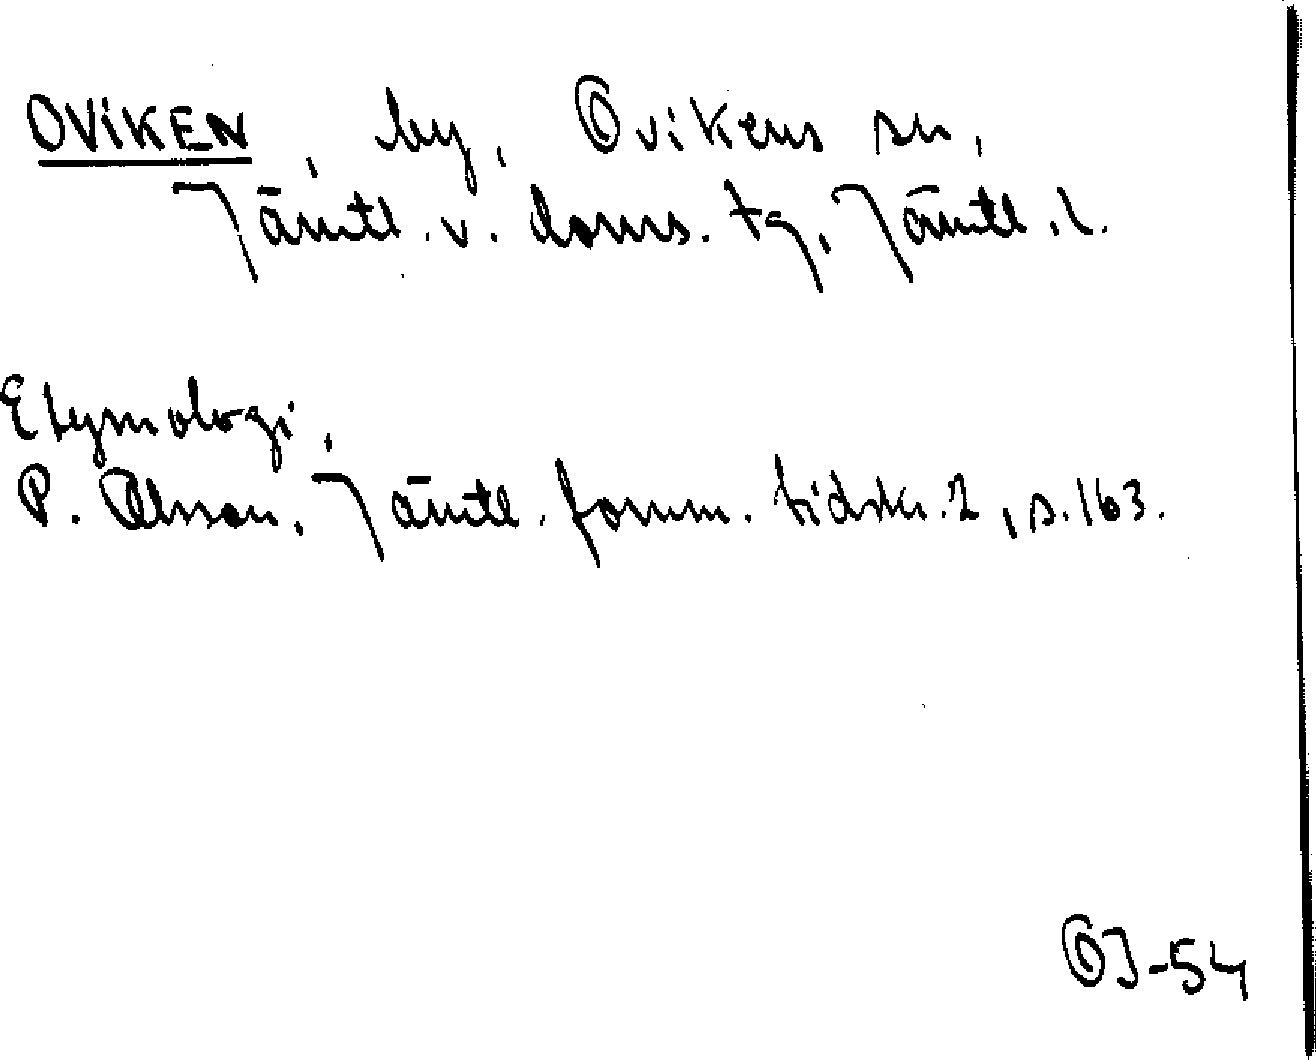 OVIKEN, by, Ovikens sn,
Jämtl. v. doms. tg, Jämtl. l.
Etymologi.
P. Olsson, Jämtl. fornm. tidskr. 2, s. 163.
OJ-54